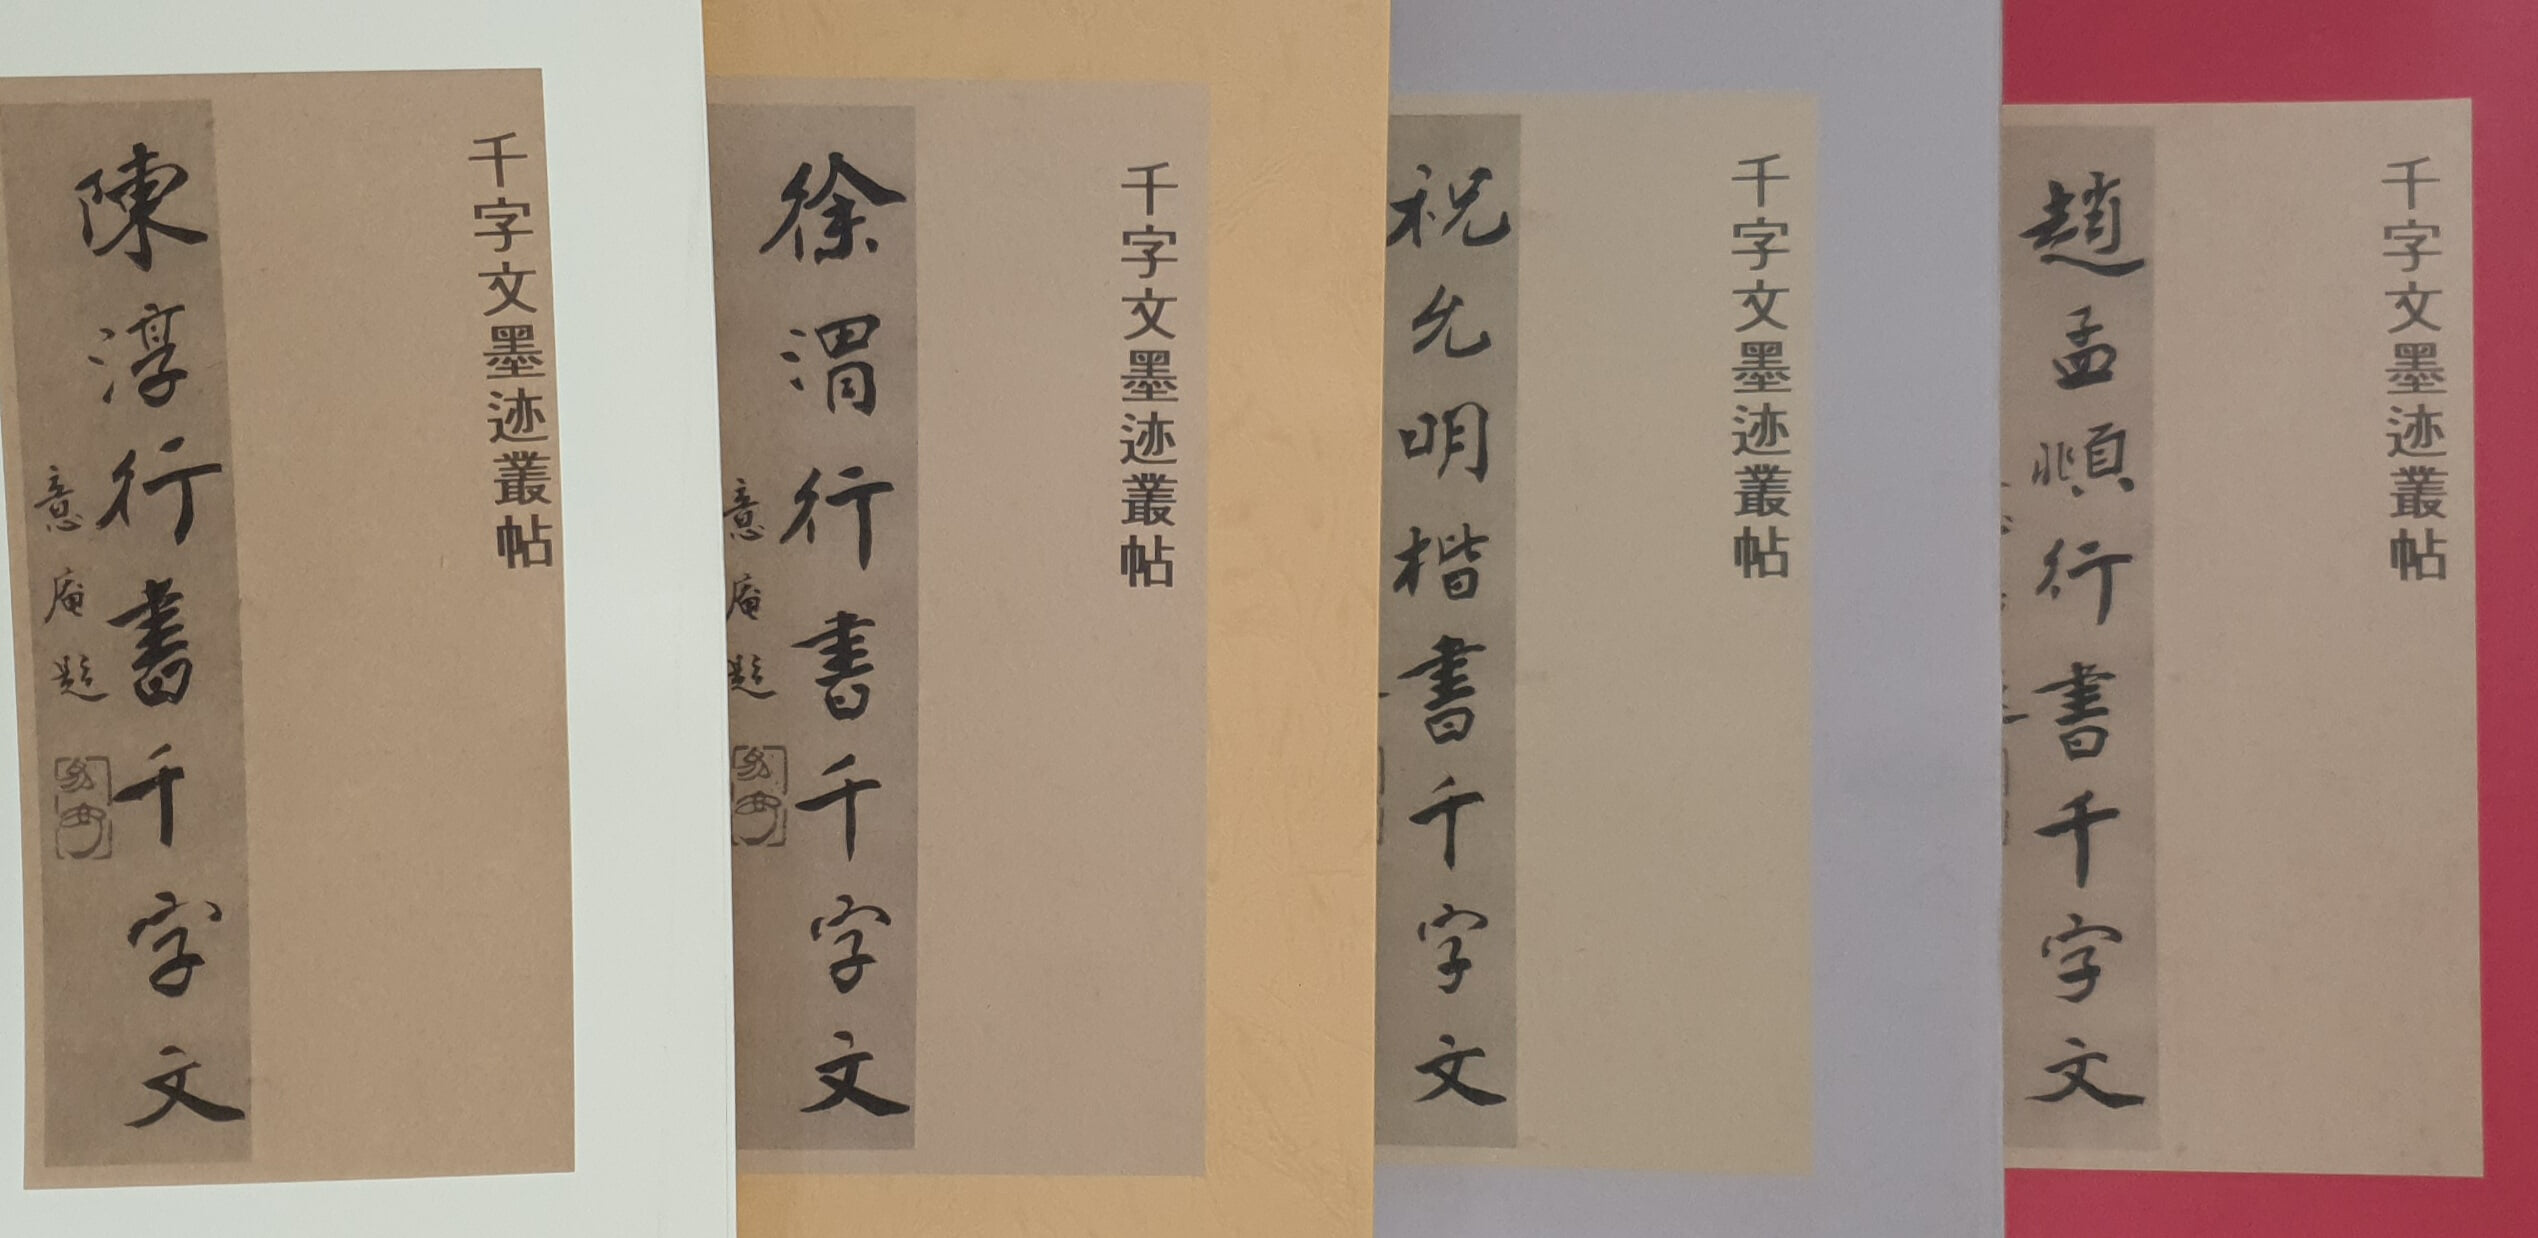 千字文墨迹叢帖
陳淳行書千字文
意庵題
千字文墨迹叢帖
徐渭行書千字文
意庵題
千字文墨迹叢帖
祝允明楷書千字文
千字文墨迹叢帖
趙孟頫行書千字文